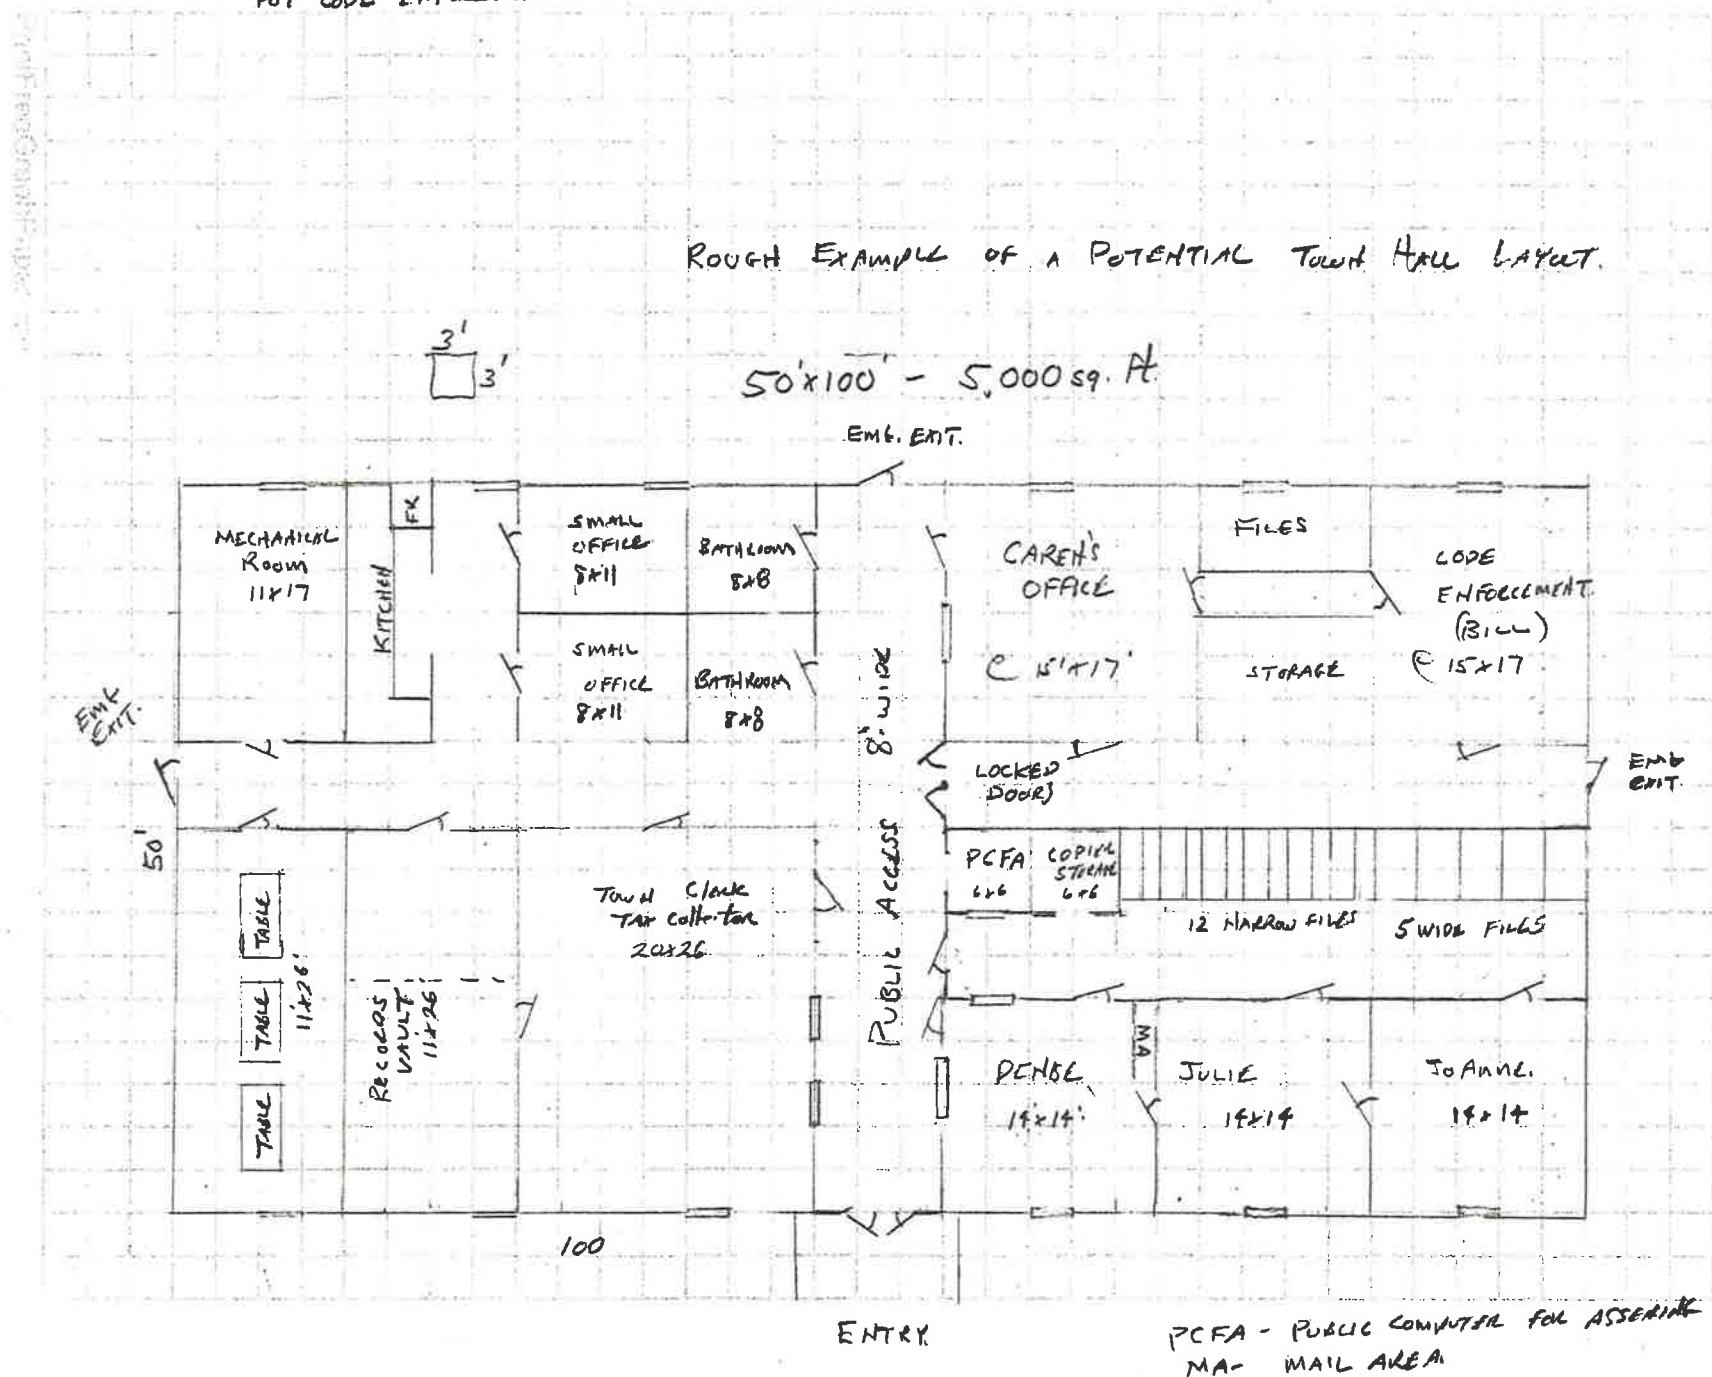 ROUGH EXAMPLE OF A POTENTIAL TOWN HALL LAYOUT.
3'
3'
50'x100' - 5,000 sq. ft.
EMG. EXIT.
MECHANICAL
ROOM
11x17
KITCHEN
FR
SMALL
OFFICE
8x11
BATHROOM
8x8
SMALL
OFFICE
8x11
BATHROOM
8x8
CAREN'S
OFFICE
C 15'x17'
FILES
STORAGE
CODE
ENFORCEMENT.
(BILL)
C 15x17
EMG
EXIT.
LOCKED
DOORS
EMG
EXIT.
50'
PUBLIC ACCESS 8' WIDE
TABLE
TABLE
TABLE
11'x26'
RECORDS
VAULT
11x26
TOWN Clerk
TAX Collector
20x26
PCFA
6x6
COPIER
STORAGE
6x6
12 NARROW FILES
5 WIDE FILES
DENISE
14'x14'
MA
JULIE
14x14
JOANNE.
14x14
100
ENTRY.
PCFA - PUBLIC COMPUTER FOR ASSESSING
MA- MAIL AREA.